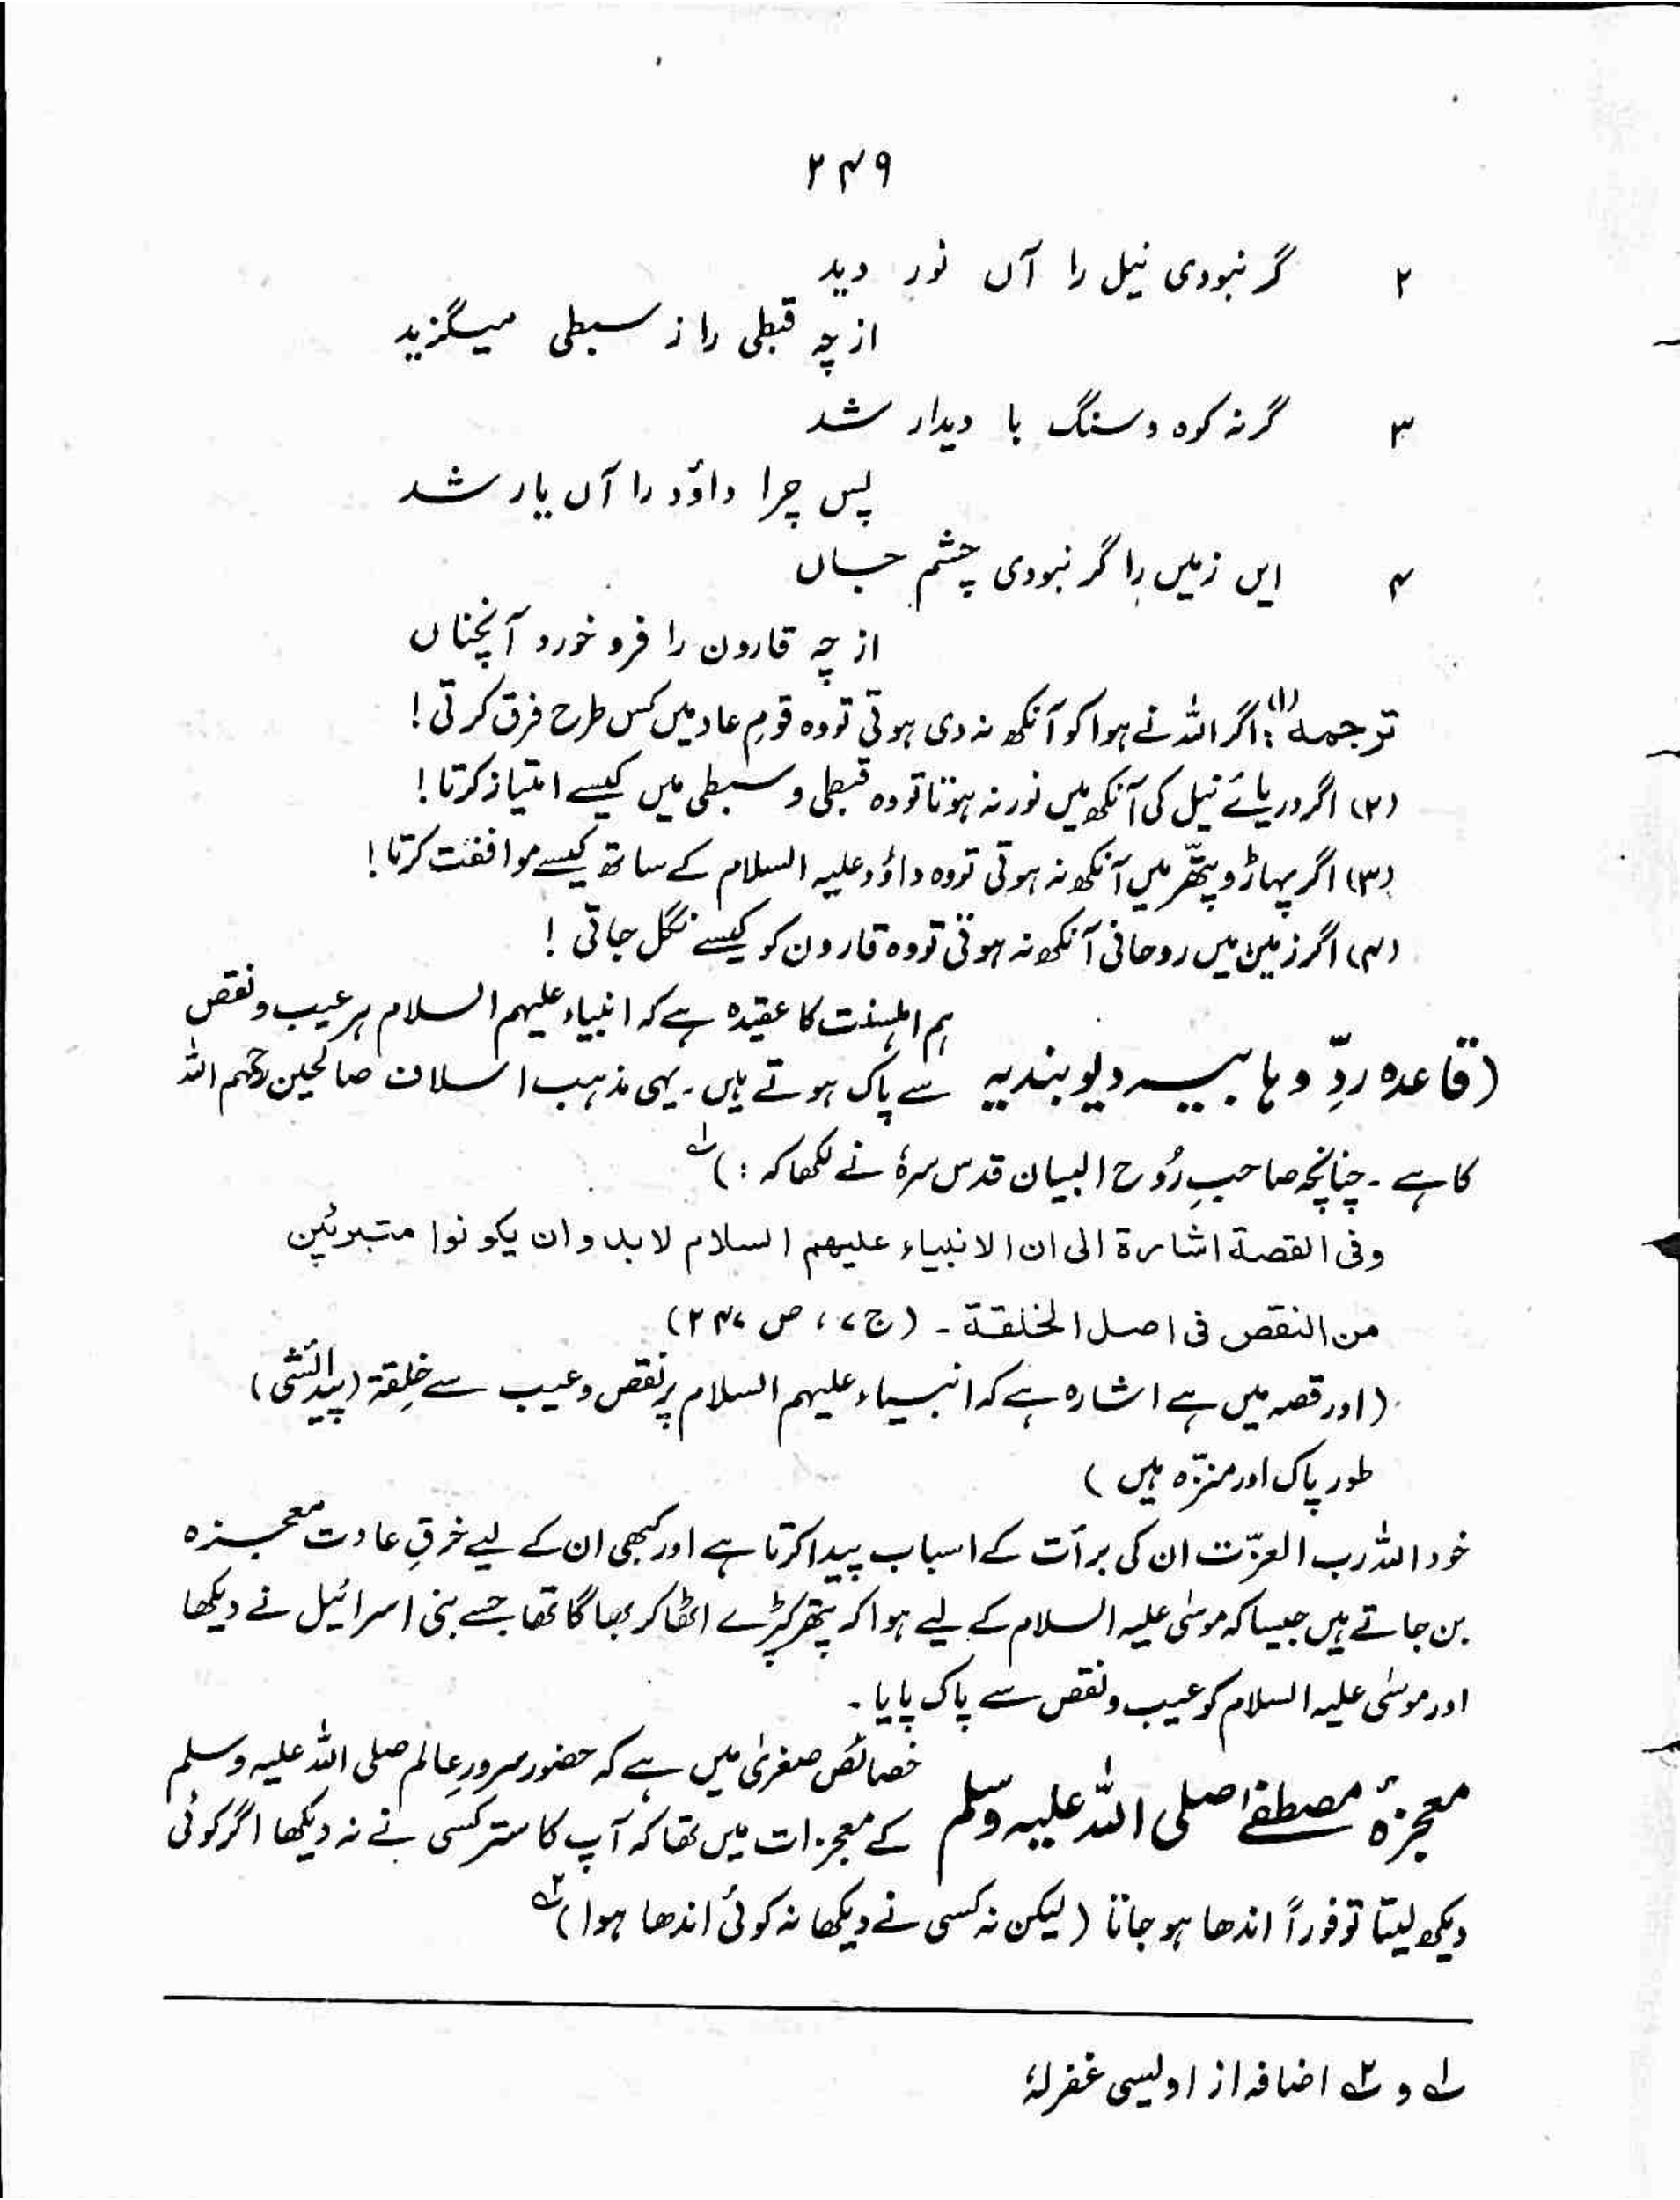 ۲۴۹
۲ گر نبودی نیل را آں نور دید
از چہ قبطی را ز سبطی میگزید
۳ گر نہ کوہ و سنگ با دیدار شد
پس چرا داؤد را آں یار شد
۴ ایں زمیں را گر نبودی چشم جاں
از چہ قارون را فرو خورد آنچناں
ترجمہ (۱): اگر اللہ نے ہوا کو آنکھ نہ دی ہوتی تو وہ قومِ عاد میں کس طرح فرق کرتی!
(۲) اگر دریائے نیل کی آنکھ میں نور نہ ہوتا تو وہ قبطی و سبطی میں کیسے امتیاز کرتا!
(۳) اگر پہاڑ و پتھر میں آنکھ نہ ہوتی تو وہ داؤد علیہ السلام کے ساتھ کیسے موافقت کرتا!
(۴) اگر زمین میں روحانی آنکھ نہ ہوتی تو وہ قارون کو کیسے نگل جاتی!
ہم اہلسنت کا عقیدہ ہے کہ انبیاء علیہم السلام ہر عیب و نقص
(قاعدہ ردِّ وہابیہ دیوبندیہ سے پاک ہوتے ہیں۔ یہی مذہب اسلاف صالحین رحمہم اللہ
کا ہے۔ چنانچہ صاحبِ رُوح البیان قدس سرہٗ نے لکھا کہ:) ؎۱
وفی القصة اشارة الی ان الانبیاء علیھم السلام لابد وان یکونوا متبرئین
من النقص فی اصل الخلقة۔ (ج ۷، ص ۲۴۷)
(اور قصہ میں ہے اشارہ ہے کہ انبیاء علیہم السلام ہر نقص و عیب سے خِلقۃ (پیدائشی)
طور پاک اور منزّہ ہیں)
خود اللہ رب العزّت ان کی برأت کے اسباب پیدا کرتا ہے اور کبھی ان کے لیے خرقِ عادت معجزہ
بن جاتے ہیں جیسا کہ موسٰی علیہ السلام کے لیے ہوا کہ پتھر کپڑے اٹھا کر بھاگا تھا جسے بنی اسرائیل نے دیکھا
اور موسٰی علیہ السلام کو عیب و نقص سے پاک پایا۔
خصائص صغریٰ میں ہے کہ حضور سرورِ عالم صلی اللہ علیہ وسلم
معجزۂ مصطفےٰ صلی اللہ علیہ وسلم کے معجزات میں تھا کہ آپ کا ستر کسی نے نہ دیکھا اگر کوئی
دیکھ لیتا تو فوراً اندھا ہو جاتا (لیکن نہ کسی نے دیکھا نہ کوئی اندھا ہوا) ؎۲
؎۱ و ؎۲ اضافہ از اویسی غفرلہٗ